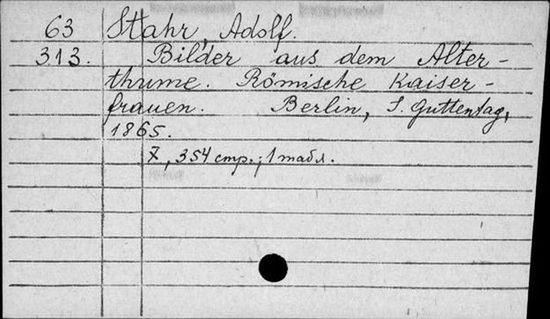 63 Stahr, Adolf.
313. Bilder aus dem Alter-
thume. Römische Kaiser-
frauen. Berlin, J. Guttentag,
1865.
X, 354 стр.; 1 табл.